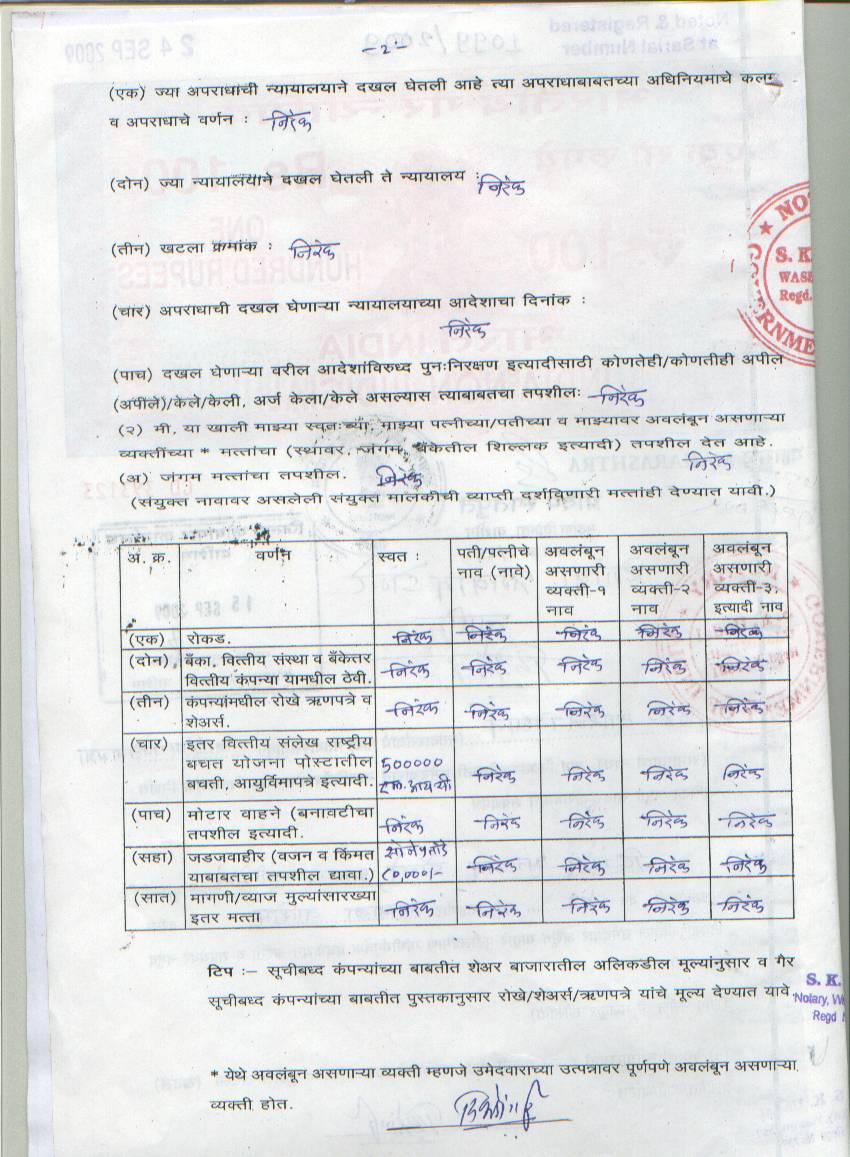 -2-
(एक) ज्या अपराधाची न्यायालयाने दखल घेतली आहे त्या अपराधाबाबतच्या अधिनियमाचे कलम
व अपराधाचे वर्णन : निरंक
(दोन) ज्या न्यायालयाने दखल घेतली ते न्यायालय : निरंक
(तीन) खटला क्रमांक : निरंक
(चार) अपराधाची दखल घेणाऱ्या न्यायालयाच्या आदेशाचा दिनांक :
निरंक
(पाच) दखल घेणाऱ्या वरील आदेशांविरुध्द पुनःनिरक्षण इत्यादीसाठी कोणतेही/कोणतीही अपील
(अपीले)/केले/केली, अर्ज केला/केले असल्यास त्याबाबतचा तपशीलः निरंक
(२) मी, या खाली माझ्या स्वतःच्या, माझ्या पत्नीच्या/पतीच्या व माझ्यावर अवलंबून असणाऱ्या
व्यक्तींच्या * मत्तांचा (स्थावर, जंगम, बँकेतील शिल्लक इत्यादी) तपशील देत आहे.
(अ) जंगम मत्तांचा तपशील. निरंक निरंक
(संयुक्त नावावर असलेली संयुक्त मालकीची व्याप्ती दर्शविणारी मत्तांही देण्यात यावी.)
अ. क्र. वर्णन स्वत : पती/पत्नीचे नाव (नावे) अवलंबून असणारी व्यक्ती-१ नाव अवलंबून असणारी व्यक्ती-२ नाव अवलंबून असणारी व्यक्ती-३, इत्यादी नाव
(एक) रोकड. निरंक निरंक निरंक निरंक निरंक
(दोन) बँका, वित्तीय संस्था व बँकेतर
वित्तीय कंपन्या यामधील ठेवी. निरंक निरंक निरंक निरंक निरंक
(तीन) कंपन्यांमधील रोखे ऋणपत्रे व
शेअर्स. निरंक निरंक निरंक निरंक निरंक
(चार) इतर वित्तीय संलेख राष्ट्रीय
बचत योजना पोस्टातील 500000
बचती, आयुर्विमापत्रे इत्यादी. एल.आय.सी निरंक निरंक निरंक निरंक
(पाच) मोटार वाहने (बनावटीचा
तपशील इत्यादी. निरंक निरंक निरंक निरंक निरंक
(सहा) जडजवाहीर (वजन व किंमत
याबाबतचा तपशील द्यावा.) ८०,०००/- निरंक निरंक निरंक निरंक
(सात) मागणी/व्याज मुल्यांसारख्या
इतर मत्ता निरंक निरंक निरंक निरंक निरंक
टिप :– सूचीबध्द कंपन्यांच्या बाबतीत शेअर बाजारातील अलिकडील मूल्यांनुसार व गैर
सूचीबध्द कंपन्यांच्या बाबतीत पुस्तकानुसार रोखे/शेअर्स/ऋणपत्रे यांचे मूल्य देण्यात यावे.
S. K.
Notary, W
Regd
* येथे अवलंबून असणाऱ्या व्यक्ती म्हणजे उमेदवाराच्या उत्पन्नावर पूर्णपणे अवलंबून असणाऱ्या
व्यक्ती होत.